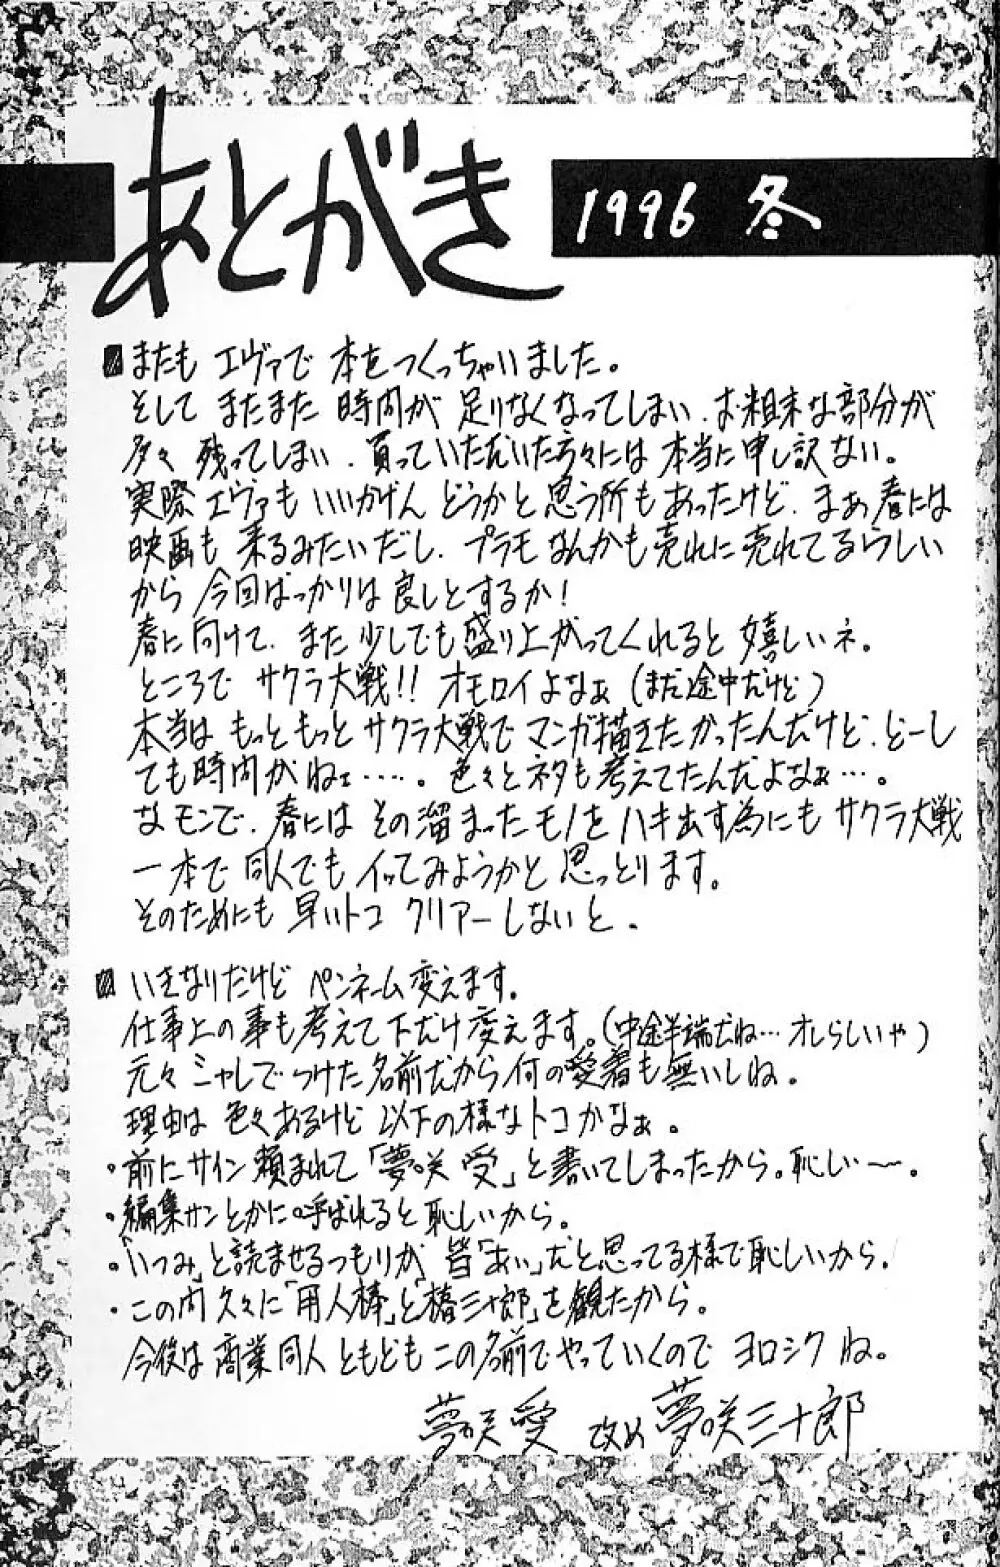 あとがき
1996 冬
またも エヴァで 本をつくっちゃいました。
そして またまた 時間が 足りなくなってしまい、お粗末な部分が
多々 残ってしまい、買っていただいた方々には 本当に申し訳ない。
実際 エヴァも いいかげん どうかと 思う所もあったけど、まぁ 春には
映画も 来るみたいだし、プラモなんかも 売れに売れてるらしい
から 今回ばっかりは 良しとするか!
春に向けて、また少しでも 盛り上がってくれると 嬉しいネ。
ところで サクラ大戦!! オモロイよなぁ (まだ途中だけど)
本当は もっともっと サクラ大戦で マンガ描きたかったんだけど、どーし
ても 時間がねェ……。色々とネタも 考えてたんだよなぁ…。
なモンで、春には その溜まったモノを ハキ出す為にも サクラ大戦
一本で 同人でも イッてみようかと 思っとります。
そのためにも 早いトコ クリアーしないと。
いきなりだけど ペンネーム変えます。
仕事上の事も考えて 下だけ変えます。(中途半端だね… オレらしいや)
元々 シャレで つけた名前だから 何の愛着も無いしね。
理由は 色々あるけど 以下の様なトコかなぁ。
・前に サイン頼まれて 「夢咲 受」と書いてしまったから。恥しい〜。
・編集サンとかに 呼ばれると 恥しいから。
・「いつみ」と読ませるつもりが 皆「あい」だと思ってる様で恥しいから。
・この間 久々に 「用人棒」と「椿三十郎」を 観たから。
今後は 商業 同人 ともども この名前で やっていくので ヨロシク ね。
夢咲 愛 改め 夢咲三十郎